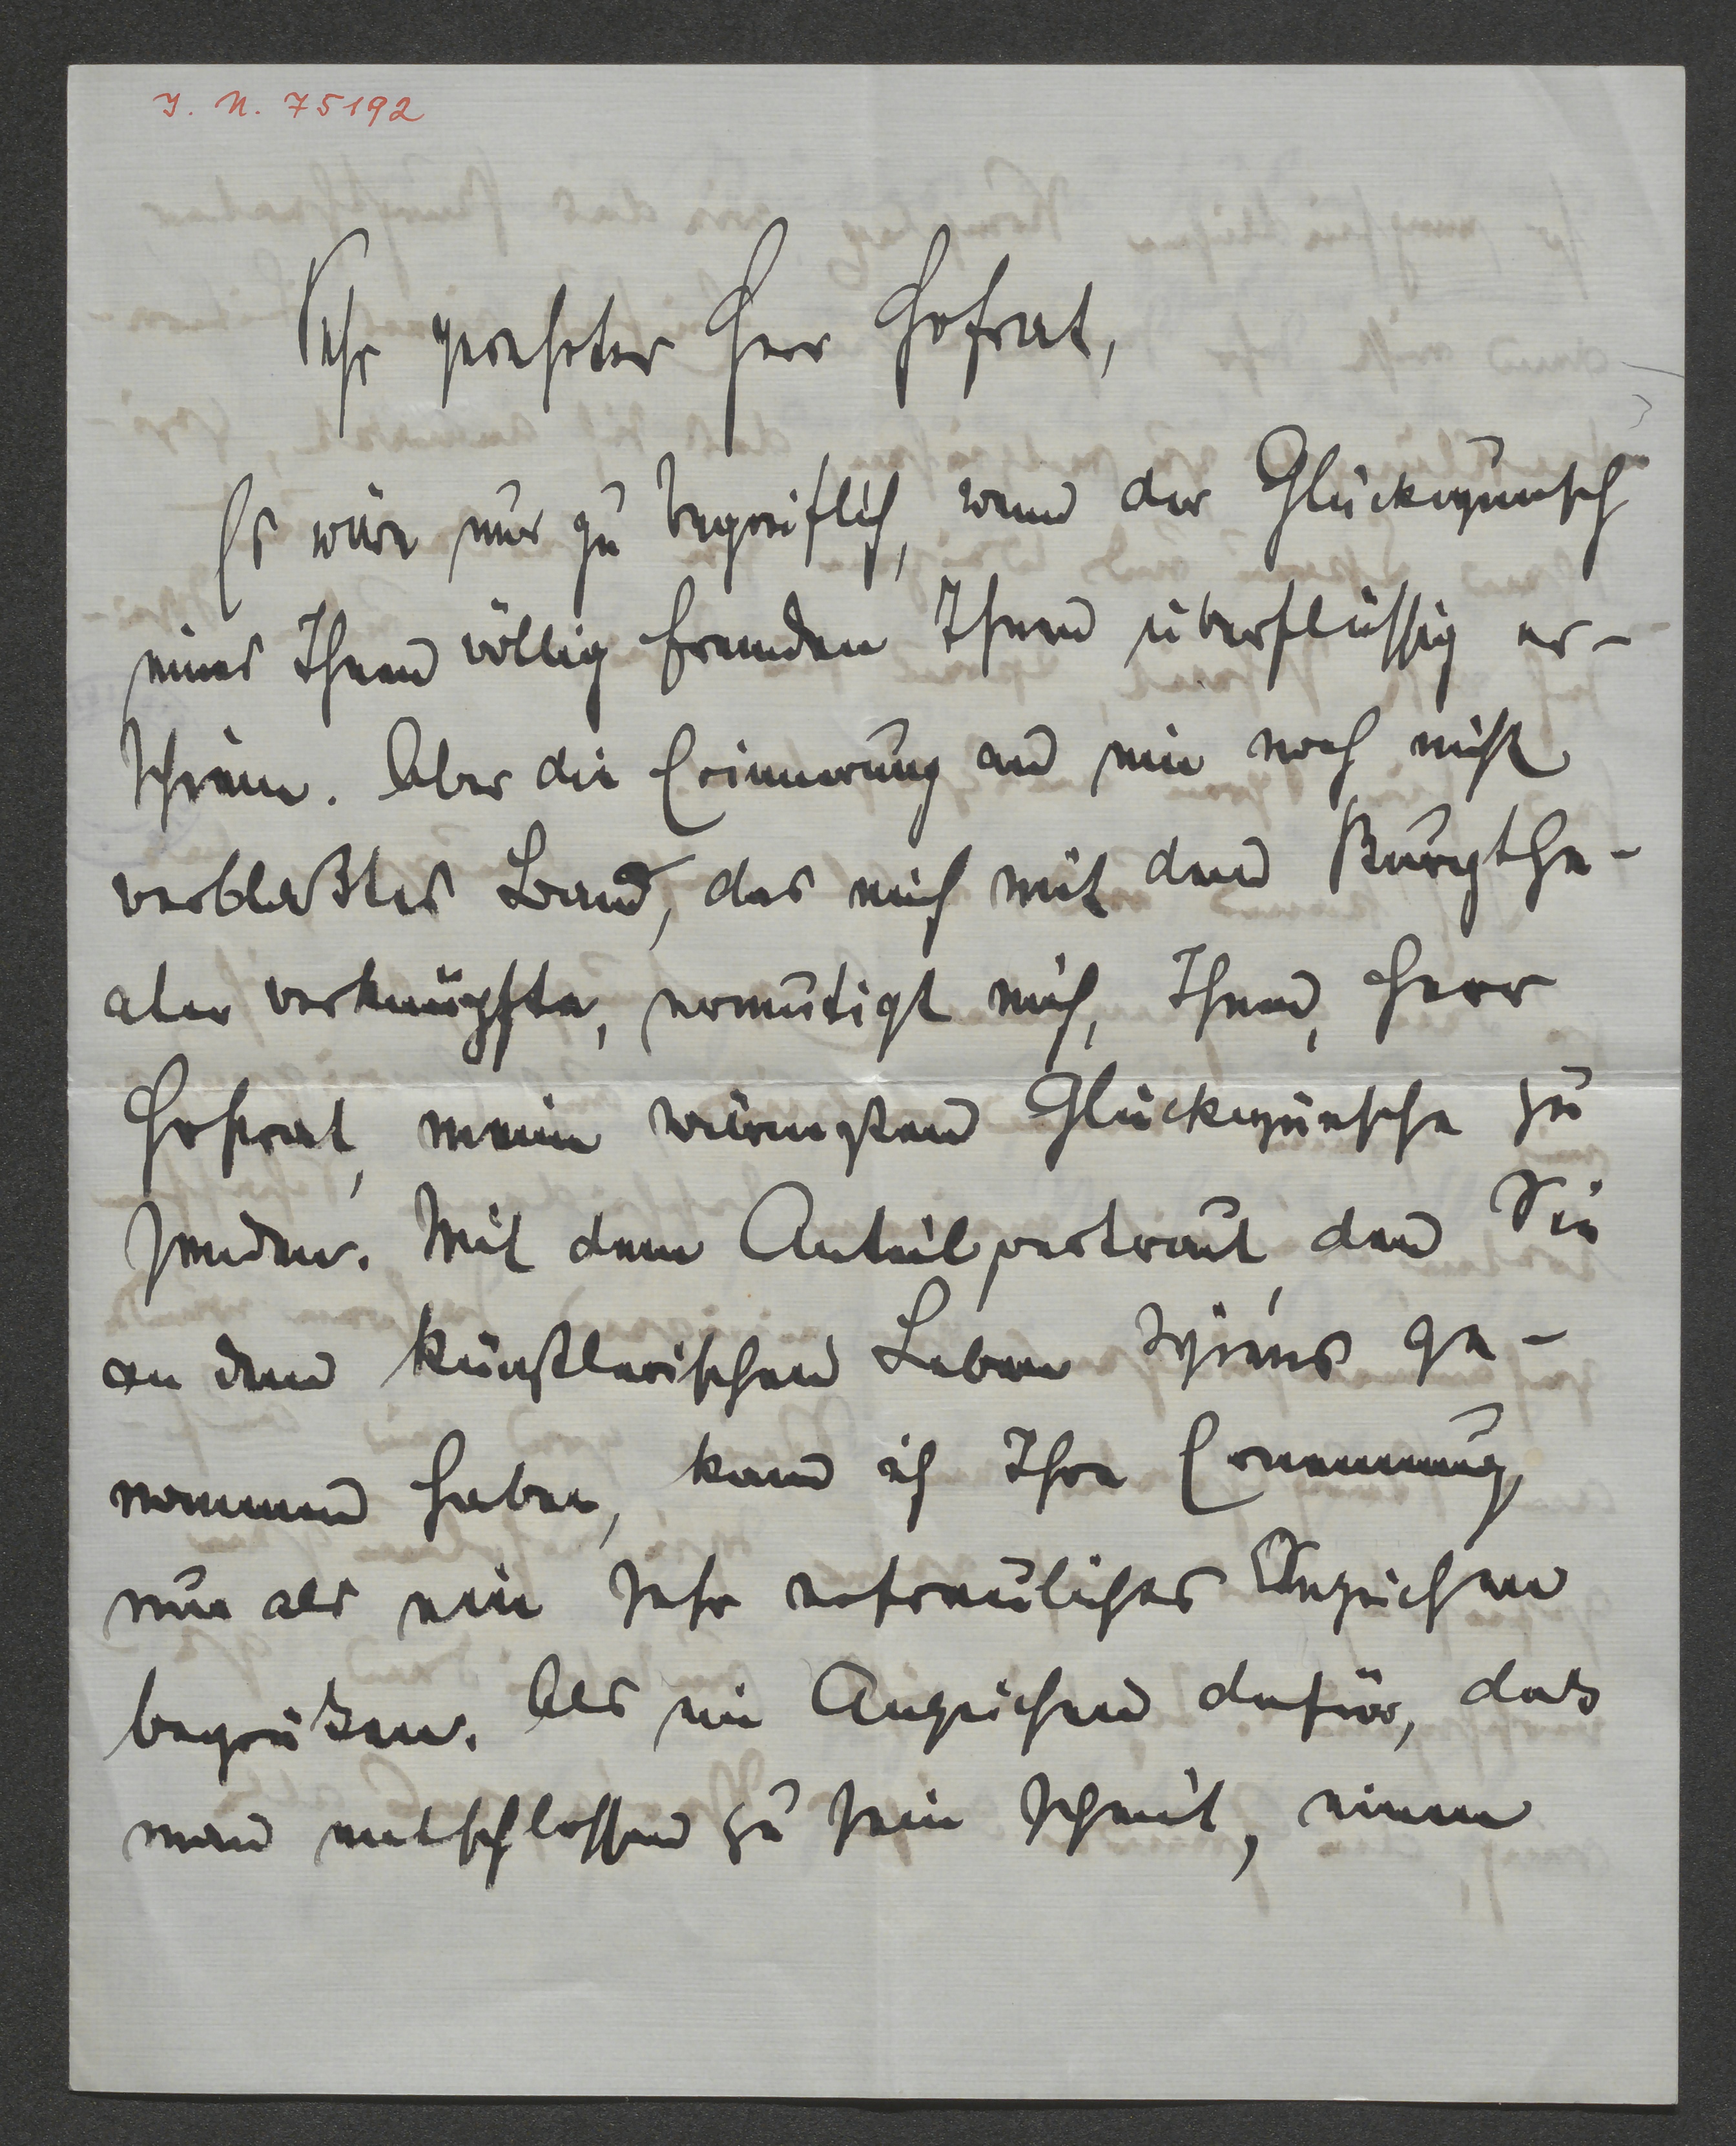 I. N. 75192
Sehr geehrter Herr Hofrat,
Es wäre nur zu begreiflich, wenn der Glückwunsch
eines Ihnen völlig fremden Ihnen überflüssig er-
schiene. Aber die Erinnerung an ein noch nicht
verblaßtes Band, das mich mit dem Burgthe-
ater verknüpfte, ermutigt mich, Ihnen, Herr
Hofrat, meine wärmsten Glückwünsche zu
senden. Mit dem Anteil vertraut, den Sie
an dem künstlerischen Leben Wiens ge-
nommen haben, kann ich Ihre Ernennung
nur als ein sehr erfreuliches Anzeichen
begrüßen. Als ein Anzeichen dafür, daß
man entschlossen zu sein scheint, einen